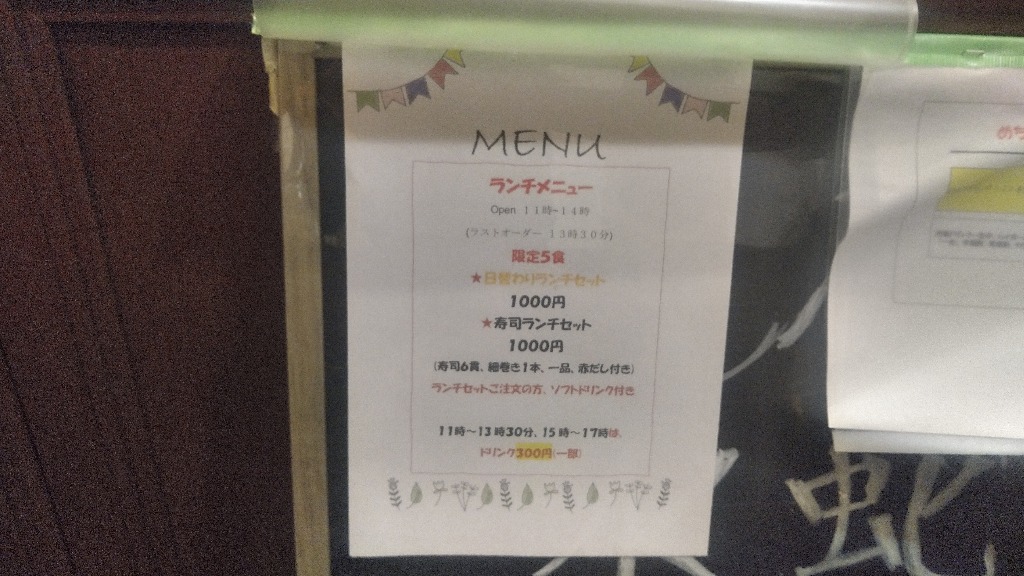 MENU
ランチメニュー
Open 11時~14時
(ラストオーダー 13時30分)
限定5食
★日替わりランチセット
1000円
★寿司ランチセット
1000円
(寿司6貫、細巻き1本、一品、赤だし付き)
ランチセットご注文の方、ソフトドリンク付き
11時〜13時30分、15時〜17時は、
ドリンク300円(一部)
めち